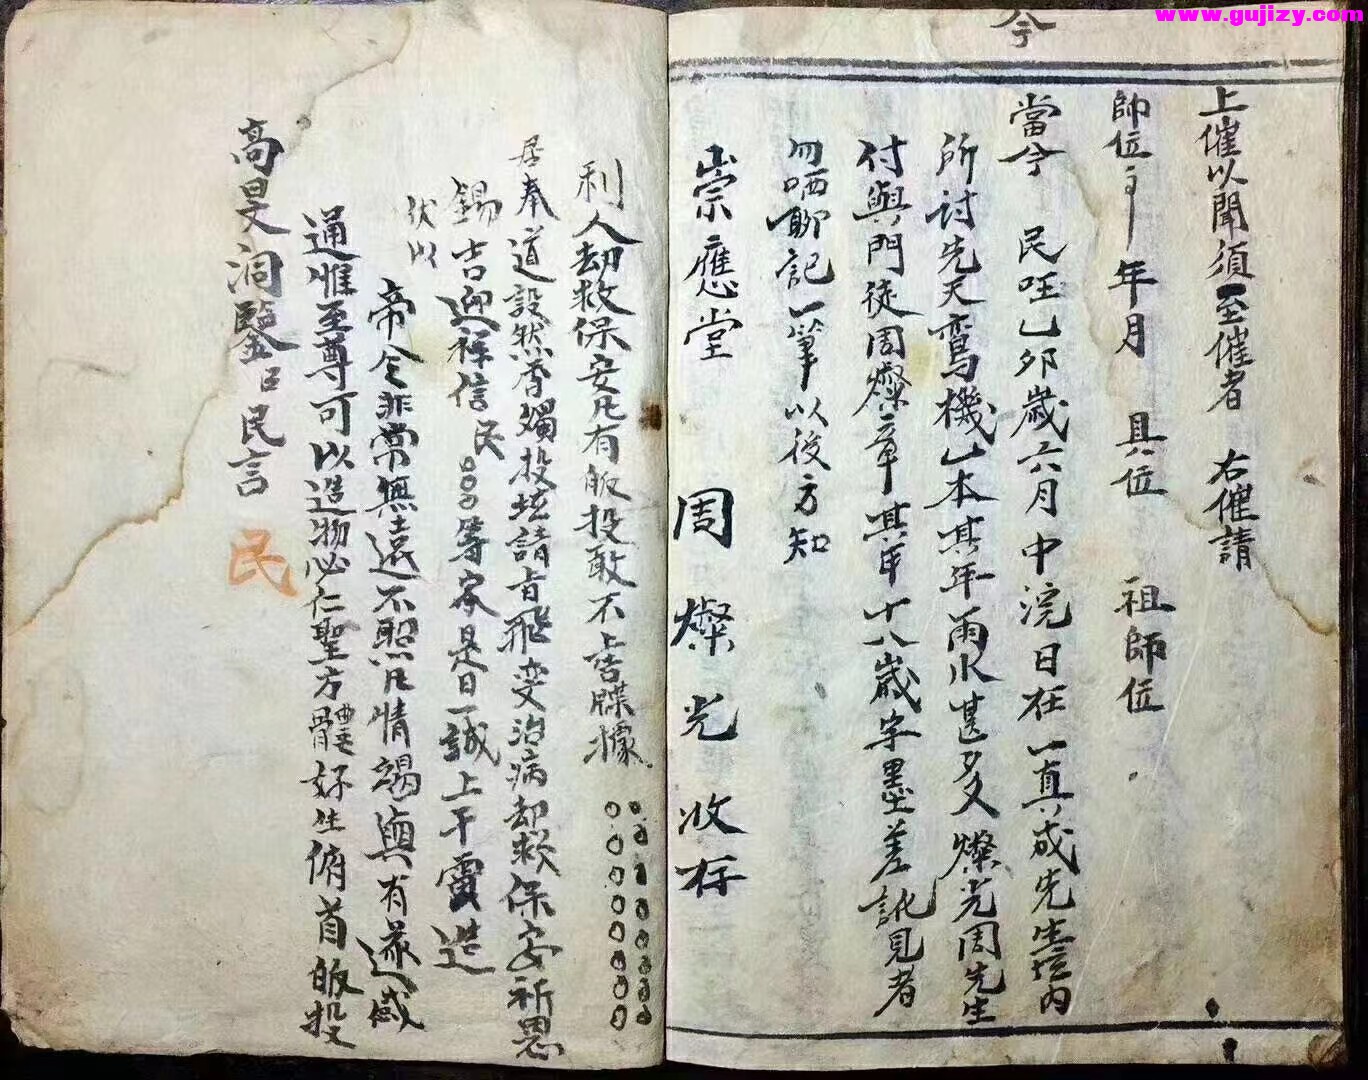 www.gujizy.com
今
上催以聞須至催者 右催請
師位 年月 具位 祖師位
當今 民旺乙卯歲六月中浣日在一真成先生壇內
所討先天鸞機乙本其年雨水甚多燦光周先生
付與門徒周燦章其年十八歲字墨差訛見者
勿哂聊記一筆以後方知
崇應堂 周燦光收存
利人劫救保安凡有皈投敢不上告牒據
居奉道設然香獨投壇請旨飛变治病却救保安祈恩
錫吉迎祥信民 等家是日一誠上干雷造
伏以
帝令非常無遠不照凡情竭與有求必感
通惟至尊可以造物必仁聖方體好生俯首皈投
高旻洞鑒 民言
民